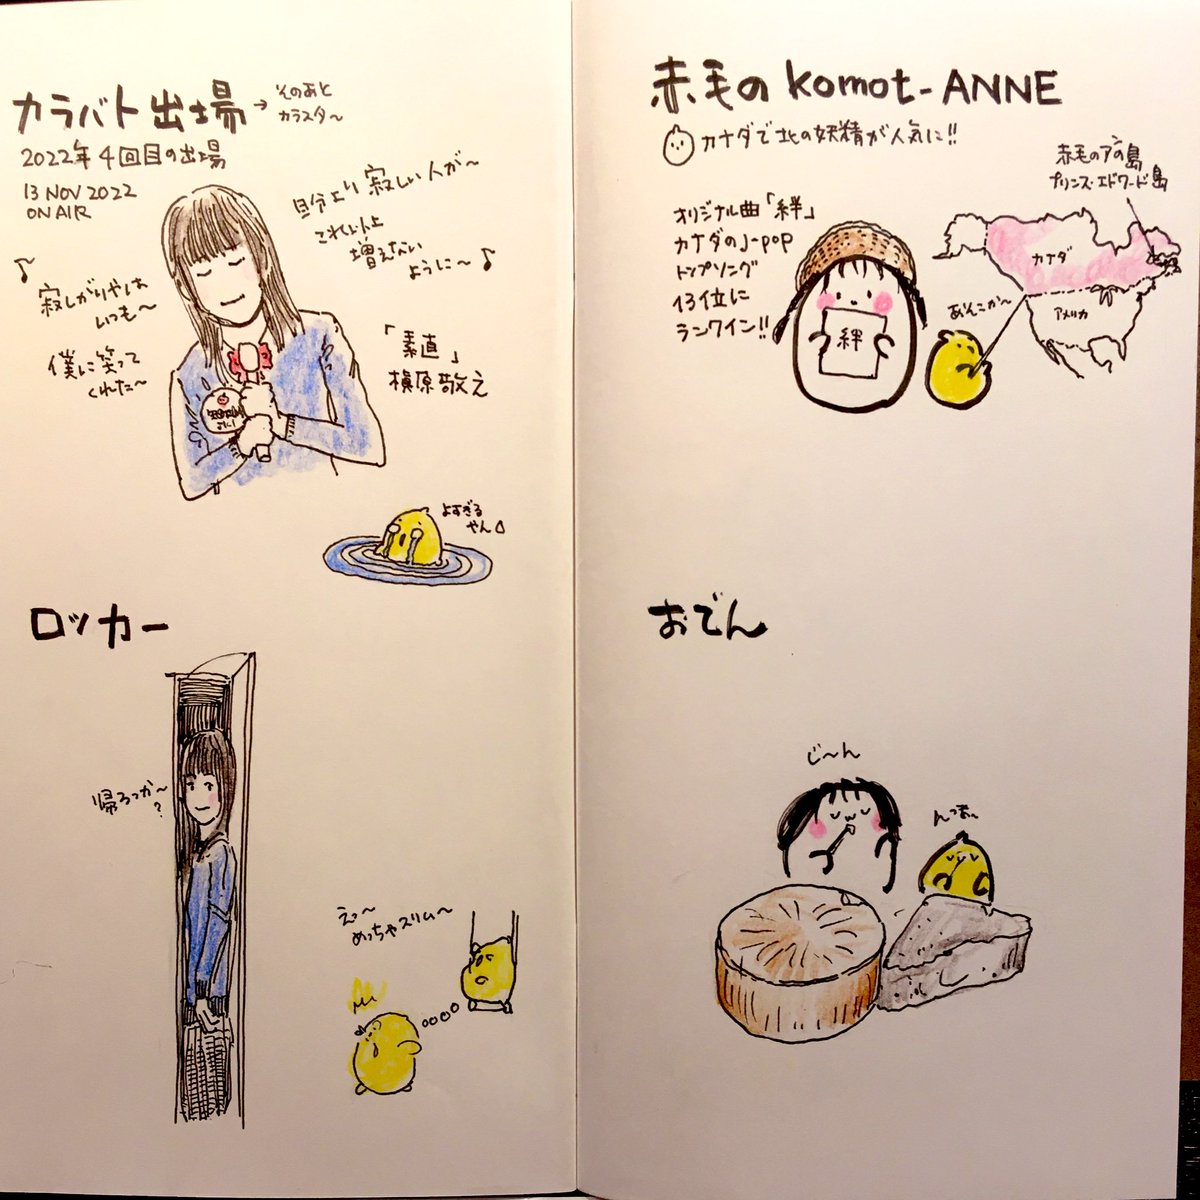 カラバト出場
→そのあと
カラスタ〜
2022年4回目の出場
13 NOV 2022
ON AIR
自分より寂しい人が〜
これ以上
増えない
ように〜♪
♪
寂しがりやは
いつも〜
僕に笑って
くれた〜
「素直」
槇原敬之
よすぎる
やん
ロッカー
帰ろっか〜
?
えっ〜
めっちゃスリム〜
赤毛のkomot-ANNE
カナダで北の妖精が人気に!!
赤毛のアンの島
プリンス・エドワード島
オリジナル曲「絆」
カナダのJ-POP
トップソング
43位に
ランクイン!!
絆
カナダ
あそこか〜
アメリカ
おでん
じ〜ん